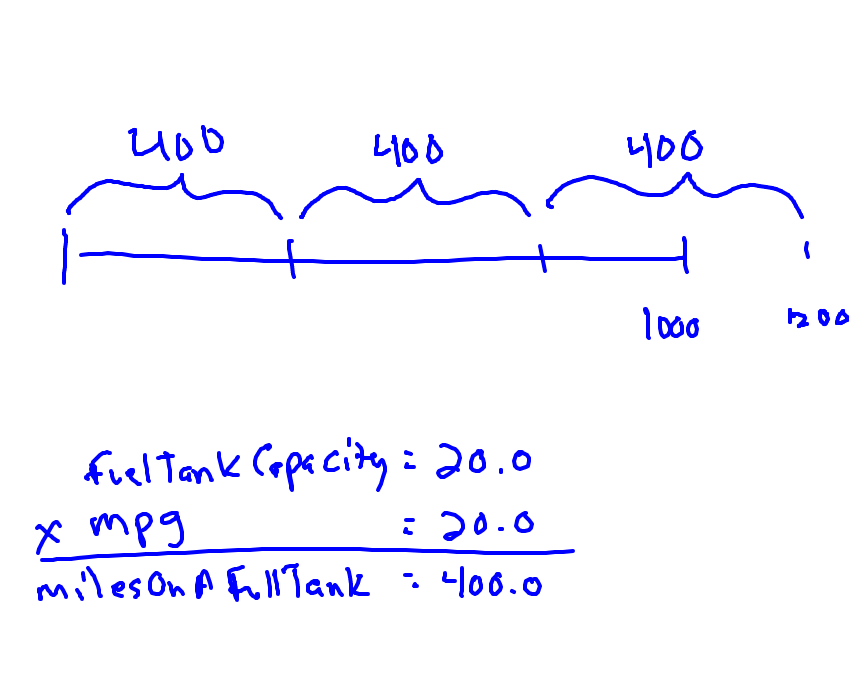 400 400 400
1000 1200
fuelTankCapacity = 20.0
x mpg = 20.0
milesOnAFullTank = 400.0